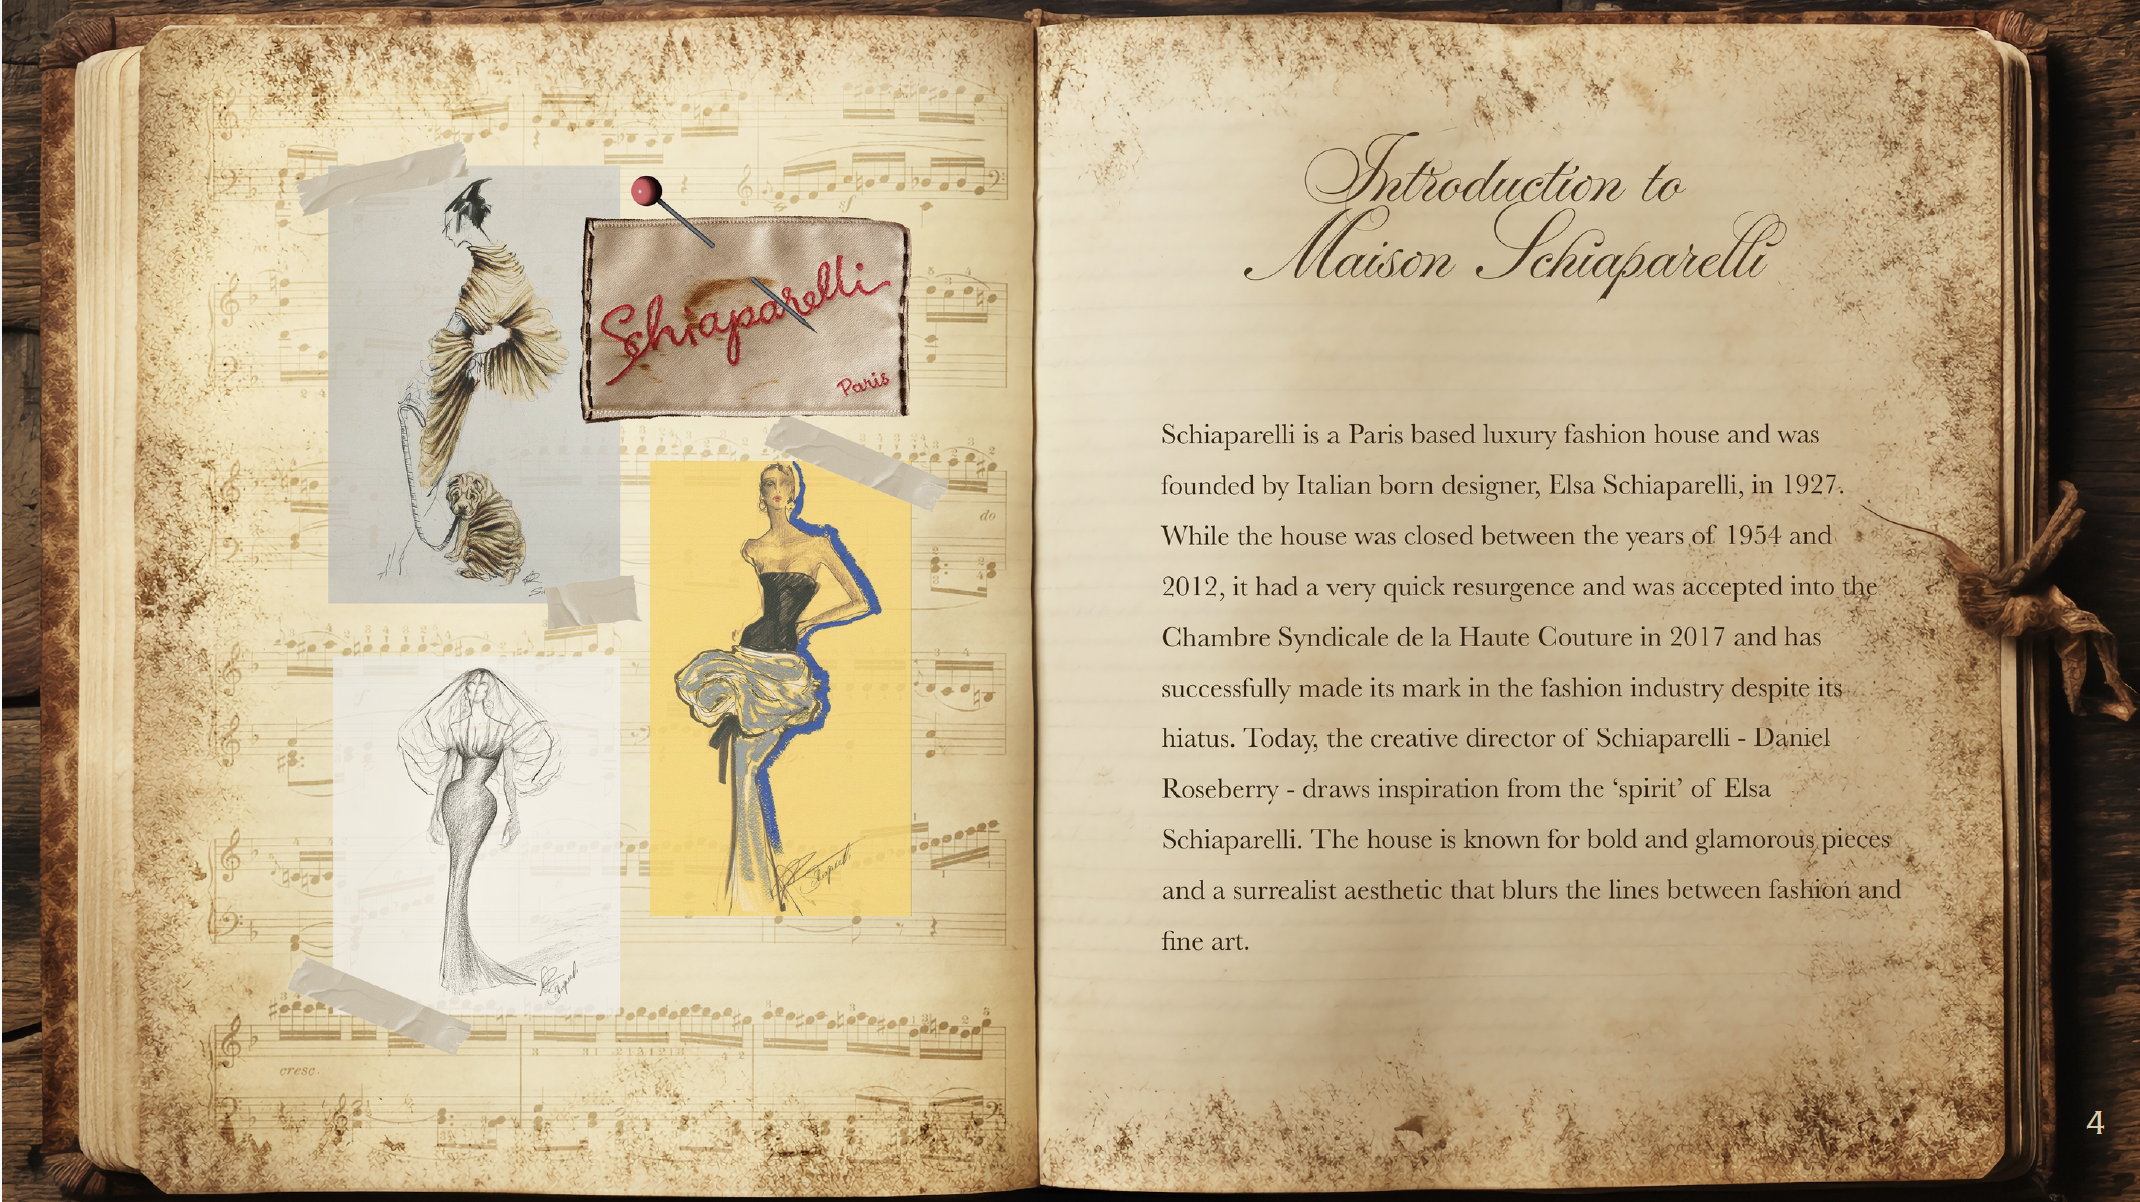 Schiaparelli
Paris
do
cresc.
Introduction to
Maison Schiaparelli
Schiaparelli is a Paris based luxury fashion house and was
founded by Italian born designer, Elsa Schiaparelli, in 1927.
While the house was closed between the years of 1954 and
2012, it had a very quick resurgence and was accepted into the
Chambre Syndicale de la Haute Couture in 2017 and has
successfully made its mark in the fashion industry despite its
hiatus. Today, the creative director of Schiaparelli - Daniel
Roseberry - draws inspiration from the ‘spirit’ of Elsa
Schiaparelli. The house is known for bold and glamorous pieces
and a surrealist aesthetic that blurs the lines between fashion and
fine art.
4